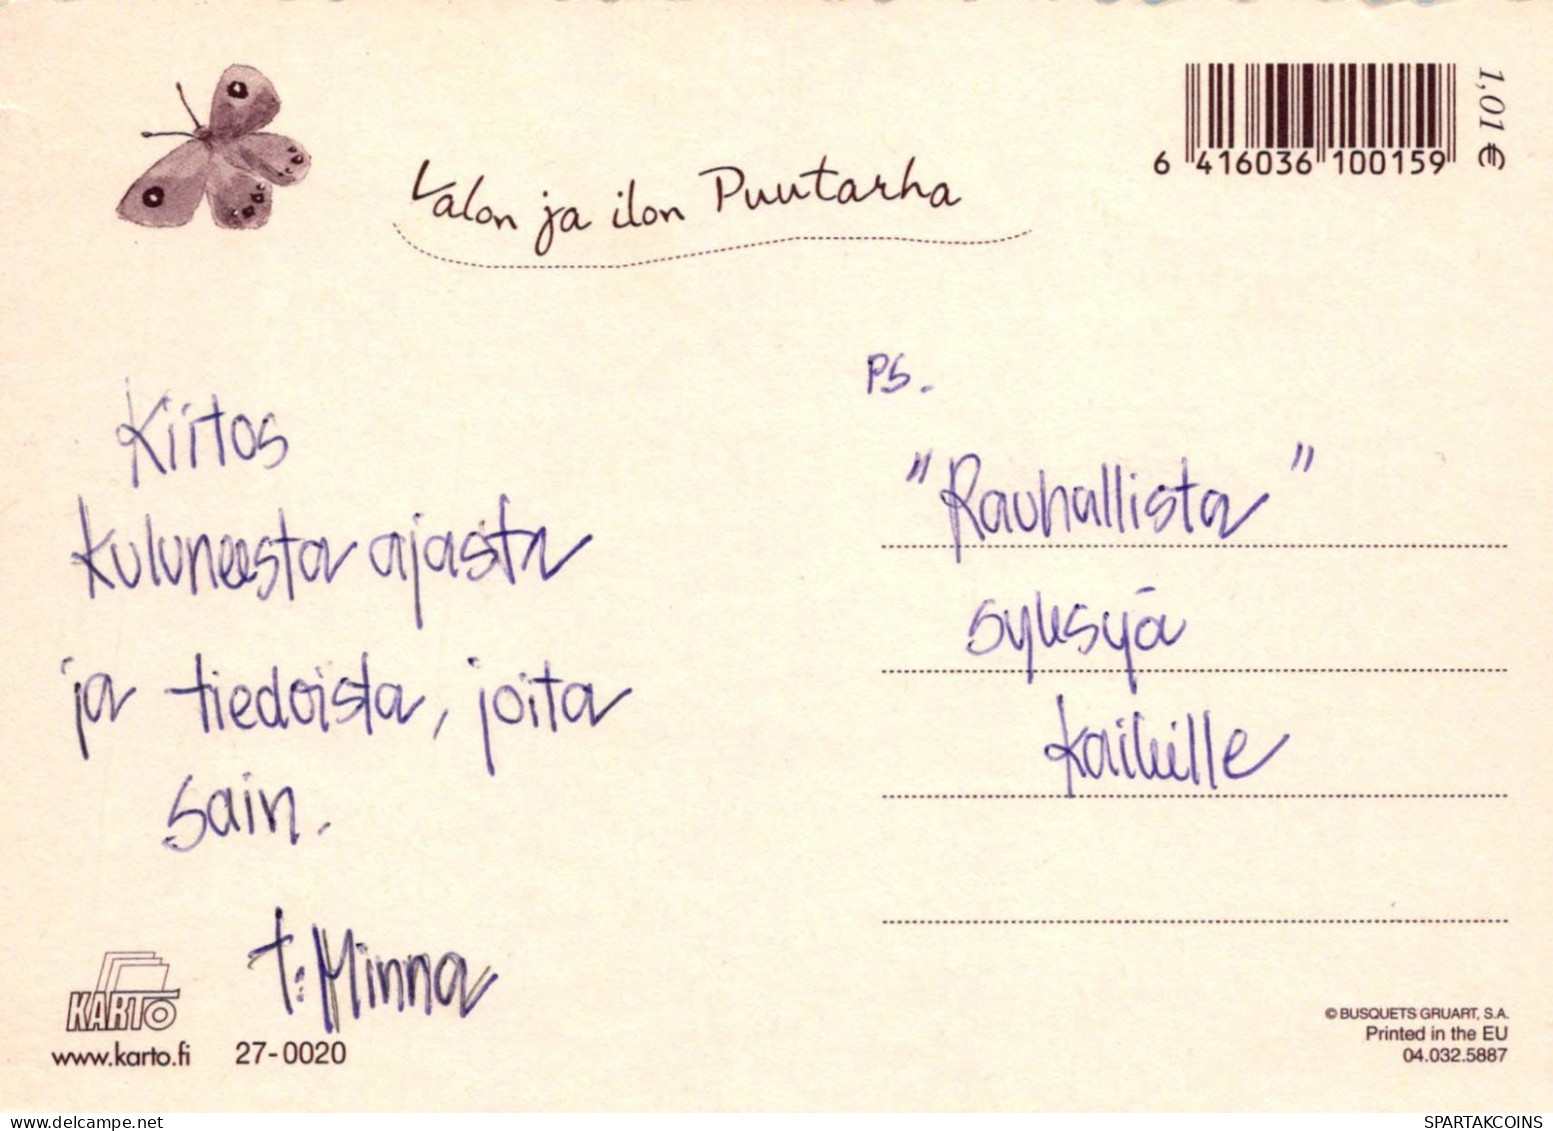 6 416036 100159
1,01 €
Valon ja ilon Puutarha
Kiitos
kuluneesta ajasta
ja tiedoista, joita
sain.
t: Minna
PS.
"Rauhallista"
syksyä
kaikille
KARTO
www.karto.fi 27-0020
© BUSQUETS GRUART, S.A.
Printed in the EU
04.032.5887
SPARTAKCOINS